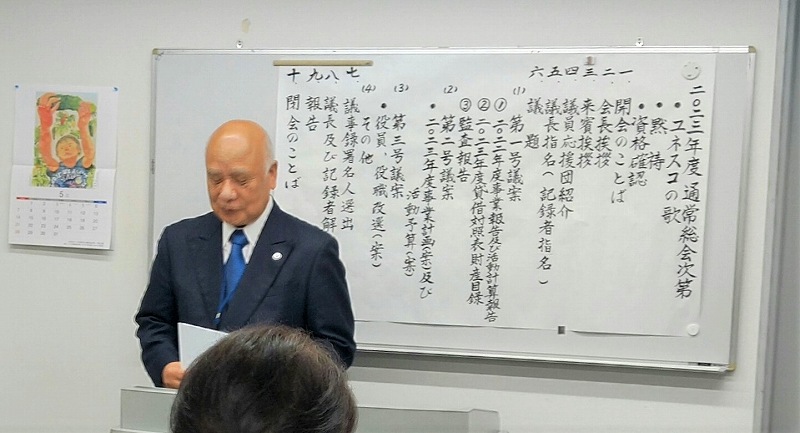 二〇二三年度 通常総会次第
• ユネスコの歌
• 黙祷
• 資格確認
一 開会のことば
二 会長挨拶
三 来賓挨拶
四 議員応援団紹介
五 議長指名(記録者指名)
六 議題
(1) 第一号議案
① 二〇二二年度事業報告及び活動計算報告
② 二〇二二年度貸借対照表財産目録
③ 監査報告
(2) 第二号議案
• 二〇二三年度事業計画(案)及び
活動予算(案)
(3) 第三号議案
• 役員、役職改選(案)
(4) その他
七 議事録署名人選出
八 議長及び記録者解
九 報告
十 閉会のことば
5